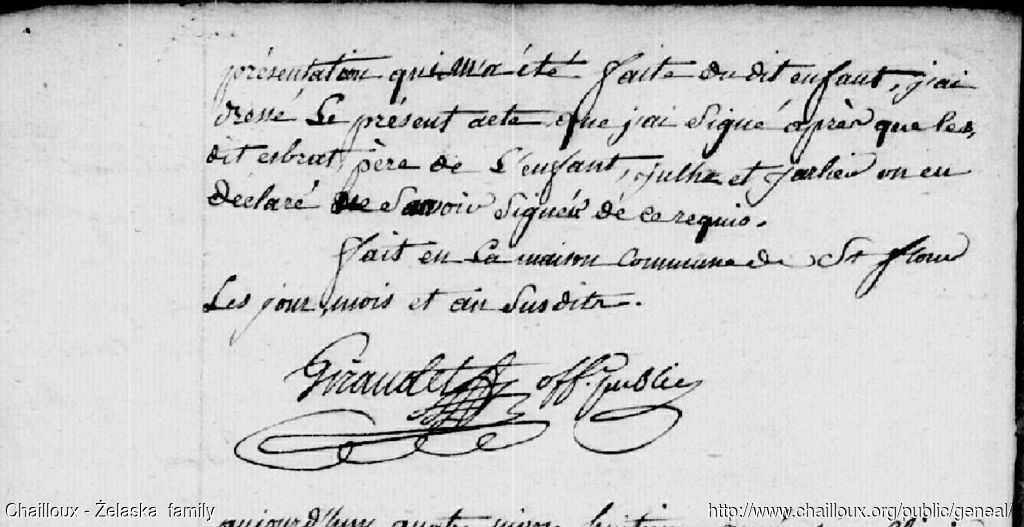 présentation qui m'a été faite du dit enfant, j'ai
dressé Le présent acte que j'ai signé après que les,
dit esbrat, père de L'enfant, julhe et jarlier on en
déclaré ne Savoir Signer de ce requis.
fait en La maison Commune de St flour
Les jour, mois et an Susdits.
Giraudet off. public
aujourd'huy quatre nivose huitieme
Chailloux - Żelaska family
http://www.chailloux.org/public/geneal/